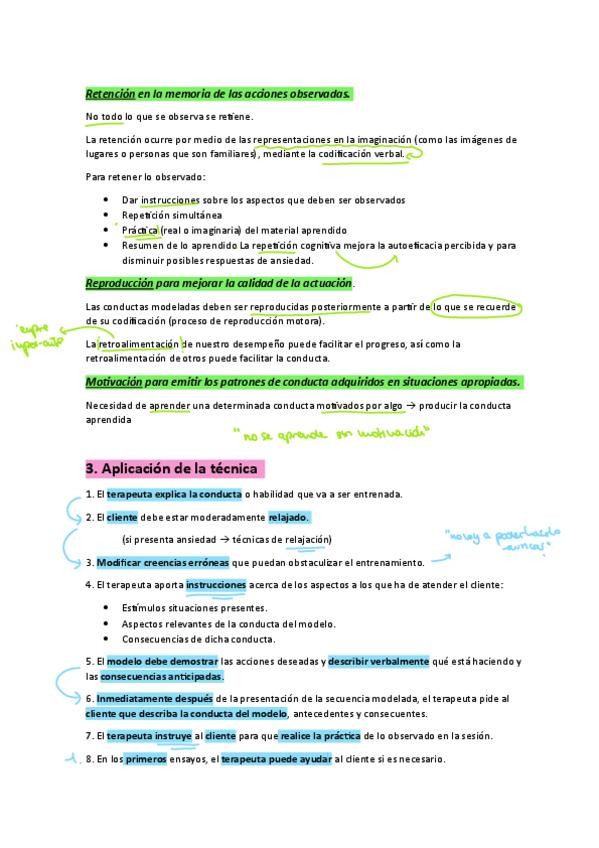 Retención en la memoria de las acciones observadas.
No todo lo que se observa se retiene.
La retención ocurre por medio de las representaciones en la imaginación (como las imágenes de
lugares o personas que son familiares), mediante la codificación verbal.
Para retener lo observado:
• Dar instrucciones sobre los aspectos que deben ser observados
• Repetición simultánea
• Práctica (real o imaginaria) del material aprendido
• Resumen de lo aprendido. La repetición cognitiva mejora la autoeficacia percibida y para
disminuir posibles respuestas de ansiedad.
Reproducción para mejorar la calidad de la actuación.
Las conductas modeladas deben ser reproducidas posteriormente a partir de lo que se recuerde
de su codificación (proceso de reproducción motora).
La retroalimentación de nuestro desempeño puede facilitar el progreso, así como la
retroalimentación de otros puede facilitar la conducta.
Motivación para emitir los patrones de conducta adquiridos en situaciones apropiadas.
Necesidad de aprender una determinada conducta motivados por algo → producir la conducta
aprendida
"no se aprende sin motivación"
3. Aplicación de la técnica
1. El terapeuta explica la conducta o habilidad que va a ser entrenada.
2. El cliente debe estar moderadamente relajado.
(si presenta ansiedad → técnicas de relajación)
3. Modificar creencias erróneas que puedan obstaculizar el entrenamiento.
4. El terapeuta aporta instrucciones acerca de los aspectos a los que ha de atender el cliente:
• Estímulos situaciones presentes.
• Aspectos relevantes de la conducta del modelo.
• Consecuencias de dicha conducta.
5. El modelo debe demostrar las acciones deseadas y describir verbalmente qué está haciendo y
las consecuencias anticipadas.
6. Inmediatamente después de la presentación de la secuencia modelada, el terapeuta pide al
cliente que describa la conducta del modelo, antecedentes y consecuentes.
7. El terapeuta instruye al cliente para que realice la práctica de lo observado en la sesión.
8. En los primeros ensayos, el terapeuta puede ayudar al cliente si es necesario.